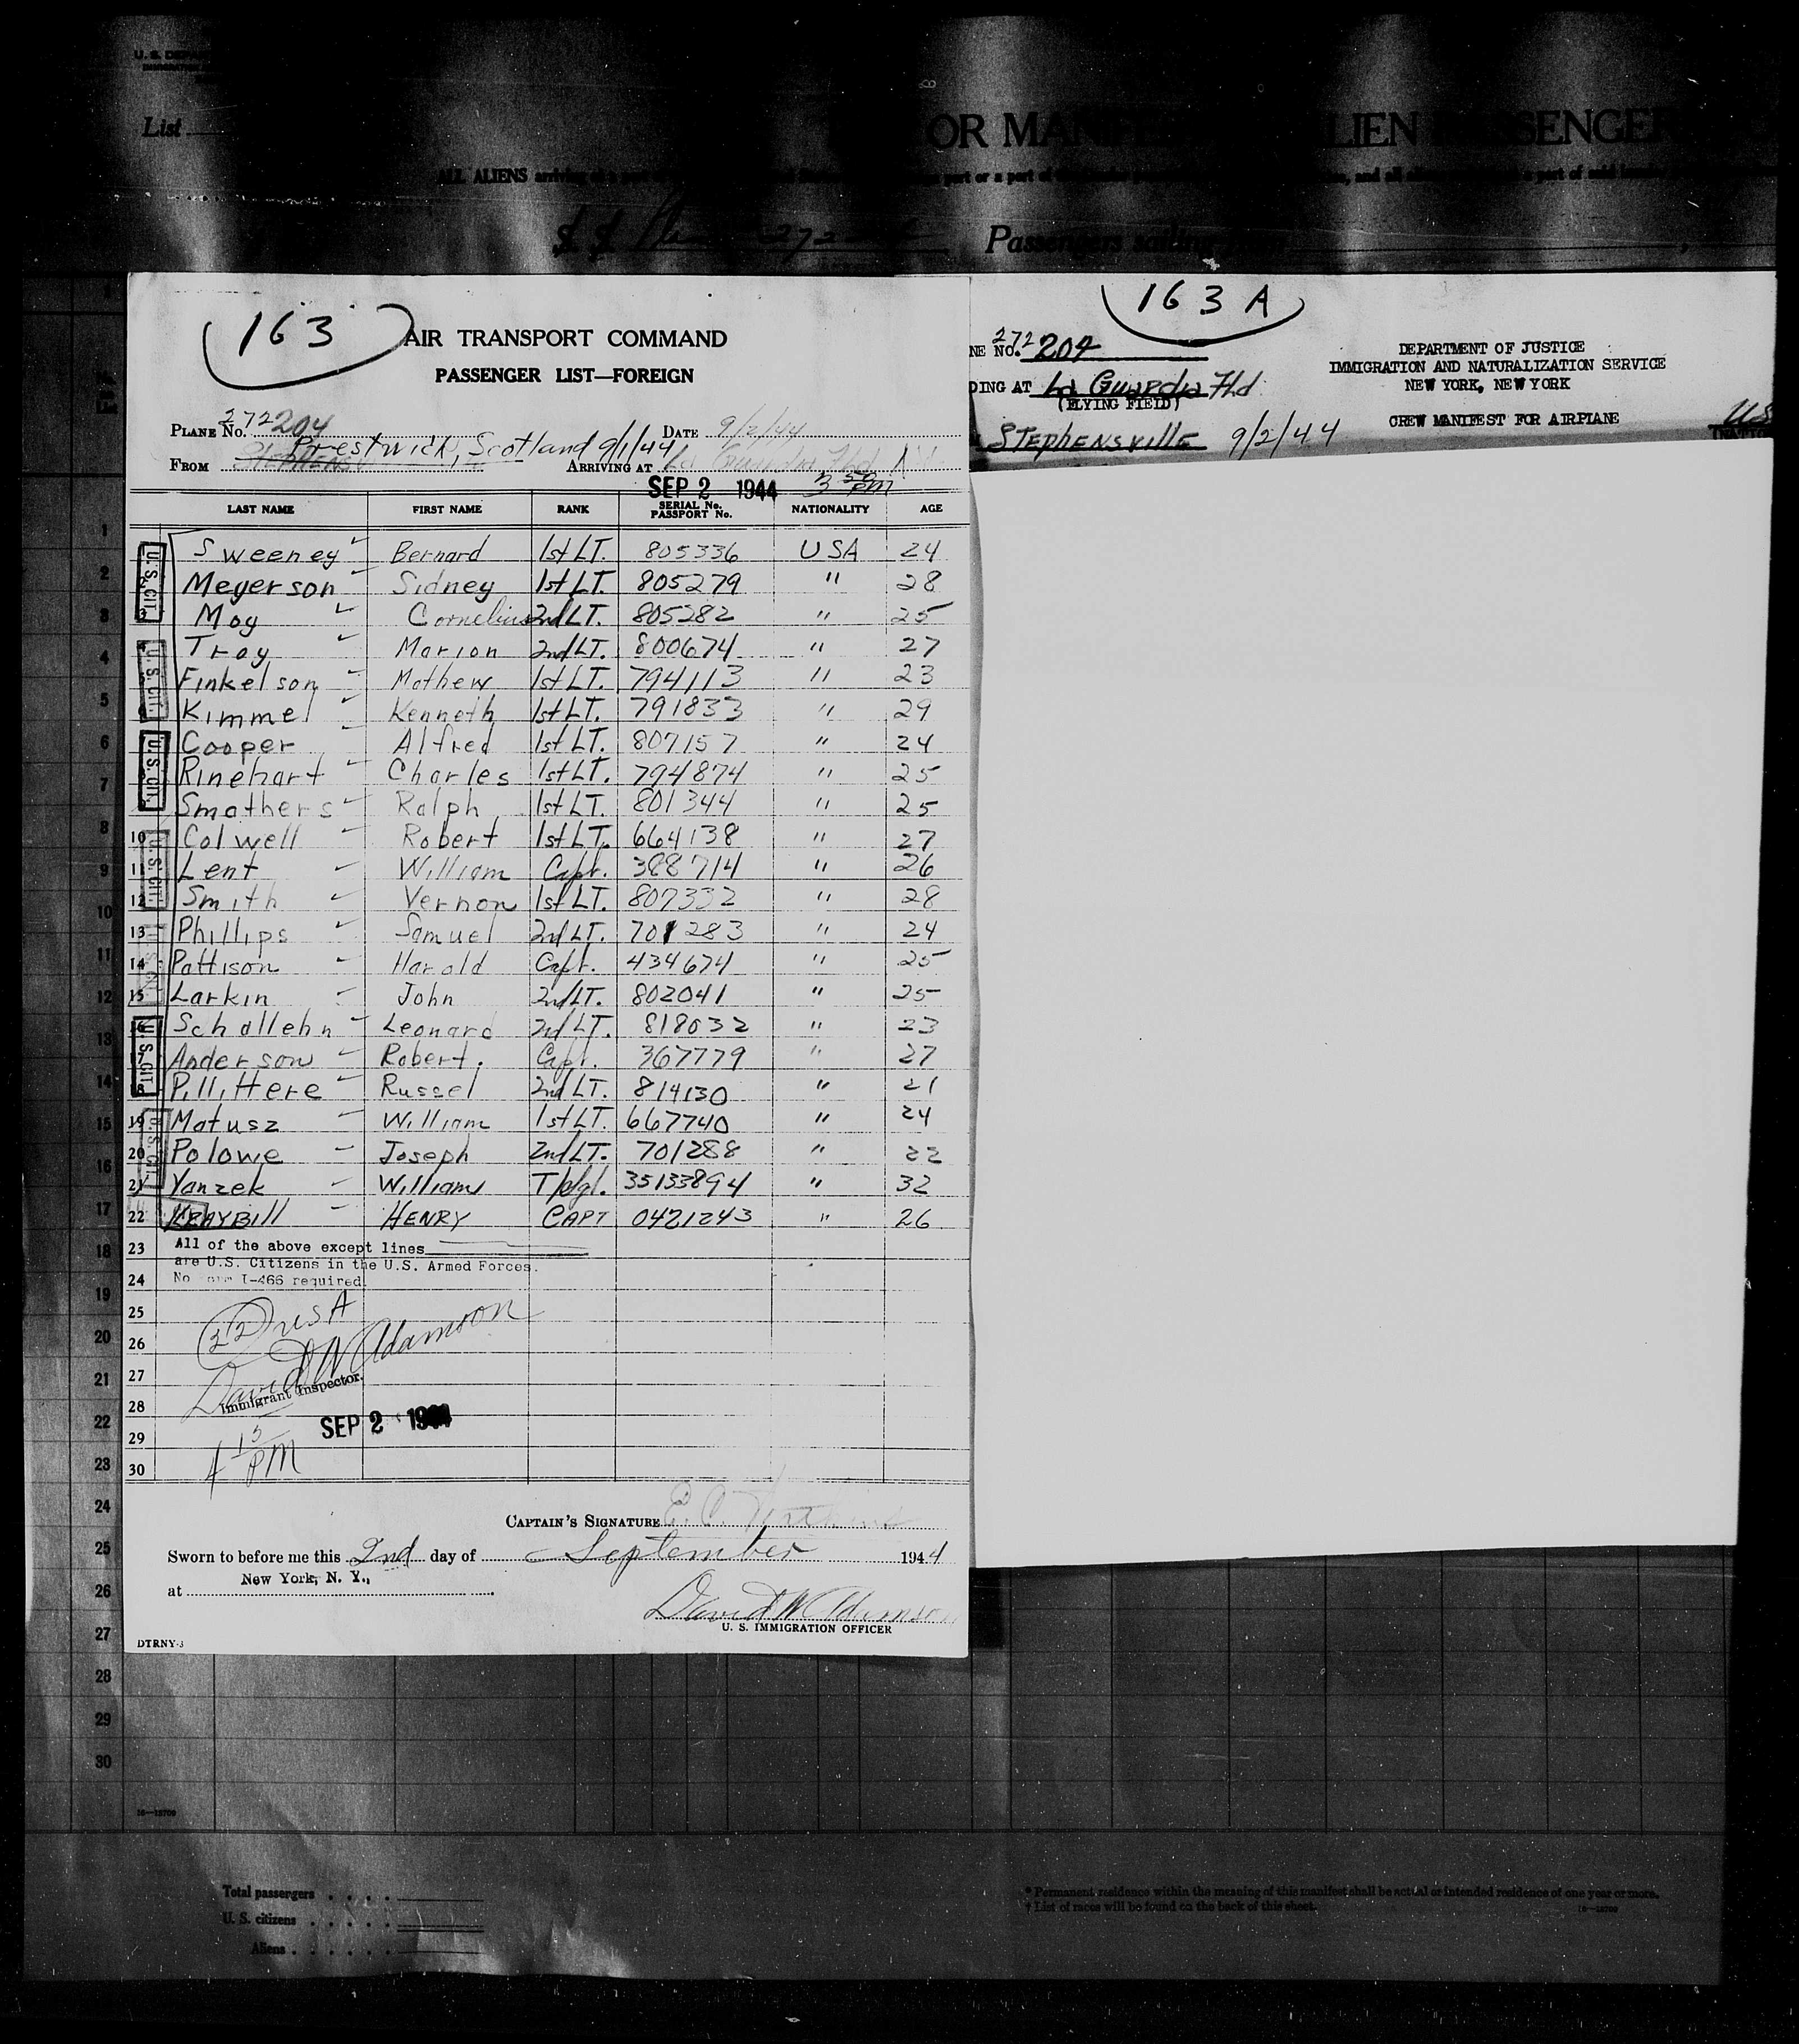 List
OR MANIFEST ALIEN PASSENGER
ALL ALIENS arriving
Passengers sailing from
163
AIR TRANSPORT COMMAND
PASSENGER LIST—FOREIGN
PLANE No. 272204 DATE 9/2/44
FROM Prestwick, Scotland 9/1/44 ARRIVING AT La Guardia Fld NY
SEP 2 1944 3 50 PM
LAST NAME FIRST NAME RANK SERIAL No. PASSPORT No. NATIONALITY AGE
1 Sweeney Bernard 1st LT. 805336 USA 24
2 Meyerson Sidney 1st LT. 805279 " 28
3 Moy Cornelius 2nd LT. 805282 " 25
4 Troy Marion 2nd LT. 800674 " 27
5 Finkelson Mathew 1st LT. 794113 " 23
6 Kimmel Kenneth 1st LT. 791833 " 29
7 Cooper Alfred 1st LT. 807157 " 24
8 Rinehart Charles 1st LT. 794874 " 25
9 Smathers Ralph 1st LT. 801344 " 25
10 Colwell Robert 1st LT. 664138 " 27
11 Lent William Capt. 388714 " 26
12 Smith Vernon 1st LT. 807332 " 28
13 Phillips Samuel 2nd LT. 701283 " 24
14 Pattison Harold Capt. 434674 " 25
15 Larkin John 2nd LT. 802041 " 25
16 Schallehn Leonard 2nd LT. 818032 " 23
17 Anderson Robert. Capt. 367779 " 27
18 Pillittere Russel 2nd LT. 814130 " 21
19 Matusz William 1st LT. 667740 " 24
20 Polowe Joseph 2nd LT. 701288 " 22
21 Yanzek William T/Sgt. 35133894 " 32
22 KRAYBILL HENRY CAPT 0421243 " 26
23 All of the above except lines
are U.S. Citizens in the U.S. Armed Forces.
24 No Form I-466 required.
25
(22) USA
26
David W Adamson
27
Immigrant Inspector.
28
SEP 2 1944
29
4 15 PM
30
CAPTAIN'S SIGNATURE E. C.
Sworn to before me this 2nd day of September 1944
at New York, N. Y.,
David W Adamson
U. S. IMMIGRATION OFFICER
DTRNY-3
U.S. CIT.
U.S. CIT.
U.S. CIT.
U.S. CIT.
U.S. CIT.
U.S. CIT.
U.S. CIT.
163 A
NE NO. 272204
DING AT La Guardia Fld
(FLYING FIELD)
Stephensville 9/2/44
DEPARTMENT OF JUSTICE
IMMIGRATION AND NATURALIZATION SERVICE
NEW YORK, NEW YORK
CREW MANIFEST FOR AIRPLANE
US
1
2
3
4
5
6
7
8
9
10
11
12
13
14
15
16
17
18
19
20
21
22
23
24
25
26
27
28
29
30
16—12700
Total passengers
U. S. citizens
Aliens
* Permanent residence within the meaning of this manifest shall be actual or intended residence of one year or more.
† List of races will be found on the back of this sheet.
16—12700